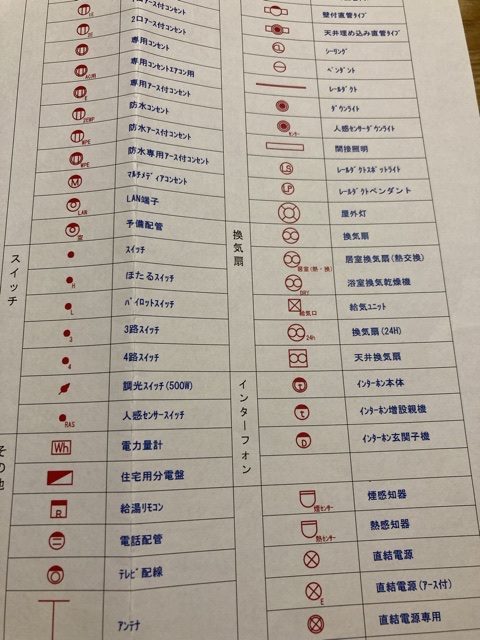 2口アース付コンセント
2E
専用コンセント
専用コンセントエアコン用
AC用
専用アース付コンセント
E
防水コンセント
2EWP
防水アース付コンセント
WPE
防水専用アース付コンセント
WPE
M
マルチメディアコンセント
LAN
LAN端子
予備配管
スイッチ
スイッチ
H
ほたるスイッチ
L
パイロットスイッチ
3
3路スイッチ
4
4路スイッチ
調光スイッチ(500W)
RAS
人感センサースイッチ
その他
Wh
電力量計
住宅用分電盤
R
給湯リモコン
電話配管
テレビ配線
アンテナ
壁付直管タイプ
天井埋め込み直管タイプ
CL
シーリング
ペンダント
レールダクト
ダウンライト
センサー
人感センサーダウンライト
間接照明
LS
レールダクトスポットライト
LP
レールダクトペンダント
屋外灯
換気扇
換気扇
居室(熱・換)
居室換気扇(熱交換)
DRY
浴室換気乾燥機
給気口
給気ユニット
24h
換気扇(24H)
天井換気扇
インターフォン
t
インターホン本体
t
インターホン増設親機
D
インターホン玄関子機
煙センサー
煙感知器
熱センサー
熱感知器
直結電源
E
直結電源(アース付)
直結電源専用